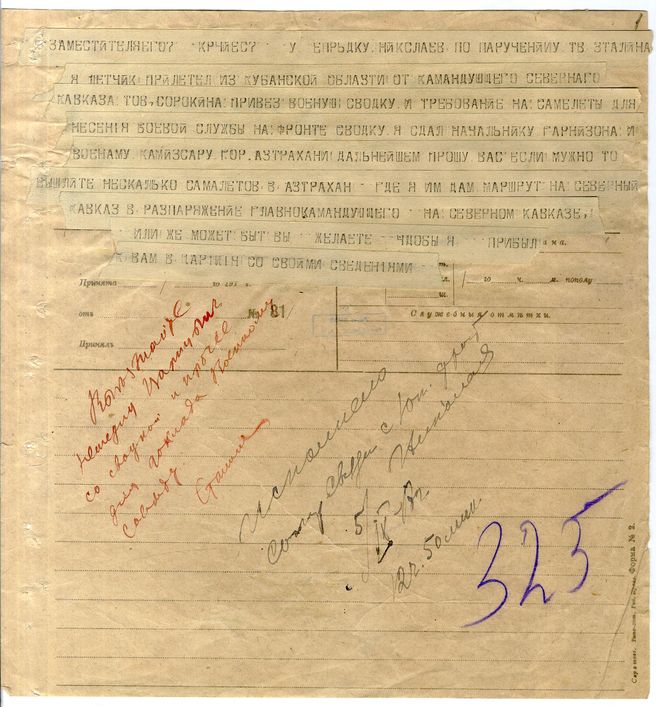 ЗАМЕСТИТЕЛЯЕГО? КРЧИЕС? У ЕПРЬДКУ НИКСЛАЕВ ПО ПАРУЧЕНИЙУ ТВ ЗТАЛИНА
Я ЛЕТЧИК ПРИЛЕТЕЛ ИЗ КУБАНСКОЙ ОБЛАЗТИ ОТ КАМАНДУЩЕГО СЕВЕРНАГО
КАВКАЗА ТОВ, СОРОКИНА ПРИВЕЗ ВОЕНУШ СВОДКУ И ТРЕБОВАНИЕ НА САМЕЛЕТЫ ДЛЯ
НЕСЕНІЯ БОЕВОЙ СЛУЖБЫ НА ФРОНТЕ СВОДКУ Я СДАЛ НАЧАЛЬНИКУ ГАРНИЗОНА И
ВОЕНАМУ КАМИЗСАРУ ГОР, АЗТРАХАНИ ДАЛЬНЕЙШЕМ ПРОШУ ВАС ЕСЛИ МУЖНО ТО
ВЫШЛИТЕ НЕСКАЛЬКО САМАЛЕТОВ В АЗТРАХАН ГДЕ Я ИМ ДАМ МАРШРУТ НА СЕВЕРНЫЙ
КАВКАЗ В РАЗПАРЯЖЕНИЕ ГЛАВНОКАМАНДУЮЩЕГО НА СЕВЕРНОМ КАВКАЗЕ,
ИЛИ ЖЕ МОЖЕТ БЫТ ВЫ ЖЕЛАЕТЕ ЧДОБЫ Я ПРИБЫЛ
К ВАМ В ЦАРИЦІН СО СВОИМИ СВЕДЕНІЯМИ
Принята / го 191 г. го ч. м. пополу
отъ № 81/ Служебныя отмѣтки.
Принялъ
немедля Царицын
со сводкой и прочее
для доклада Военному
Совету.
Сталин
Исполнено
с Юж. фронт
Николаев
5/IX-18 г.
12 ч. 50 мин.
325
Форма № 2.